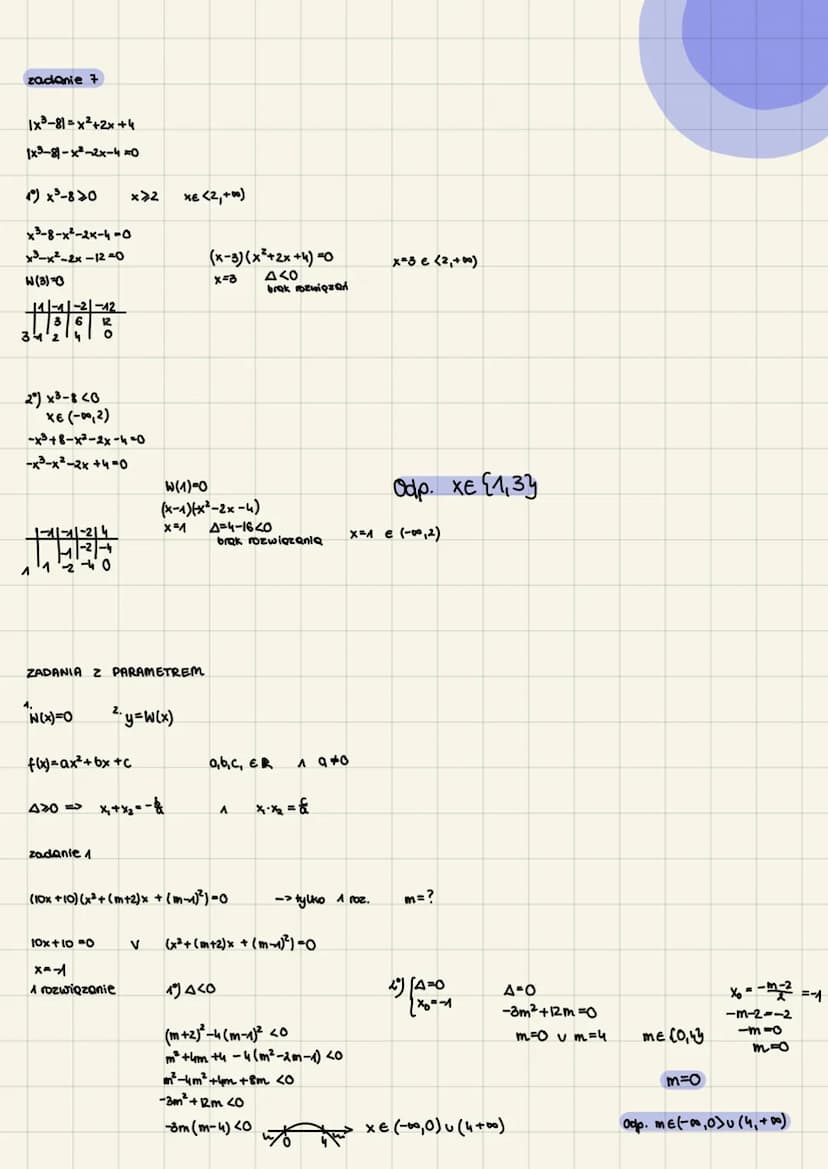 zadanie 7
|x³-8| = x²+2x+4
|x³-8| - x²-2x-4=0
1°) x³-8⩾0 x⩾2 x∈<2,+∞)
x³-8-x²-2x-4=0
x³-x²-2x-12=0 (x-3)(x²+2x+4)=0 x=3 ∈ <2,+∞)
W(3)=0 x=3 Δ<0
brak rozwiązań
|1|-1|-2|-12
3 6 12
3 1 2 4 0
2°) x³-8<0
x∈(-∞,2)
-x³+8-x²-2x-4=0
-x³-x²-2x+4=0
W(1)=0 Odp. x∈{1,3}
(x-1)(-x²-2x-4)
x=1 Δ=4-16<0 x=1 ∈ (-∞,2)
brak rozwiązania
|-1|-1|-2|4
-1 -2 -4
1 -1 -2 -4 0
ZADANIA Z PARAMETREM
1. W(x)=0 2. y=W(x)
f(x)=ax²+bx+c a,b,c, ∈ℝ ∧ a≠0
Δ⩾0 => x₁+x₂=-b/a ∧ x₁·x₂=c/a
zadanie 1
(10x+10)(x²+(m+2)x+(m-1)²)=0 -> tylko 1 roz. m=?
10x+10=0 ∨ (x²+(m+2)x+(m-1)²)=0
x=-1
1 rozwiązanie 1°) Δ<0
(m+2)²-4(m-1)²<0
m²+4m+4-4(m²-2m-1)<0
m²-4m²+4m+8m<0
-3m²+12m<0
-3m(m-4)<0 0 4 x∈(-∞,0)∪(4+∞)
2°) {Δ=0
x₀=-1
Δ=0
-3m²+12m=0
m=0 ∪ m=4 m∈{0,4}
x₀=(-m-2)/2=-1
-m-2=-2
-m=0
m=0
m=0
Odp. m∈(-∞,0>∪(4,+∞)